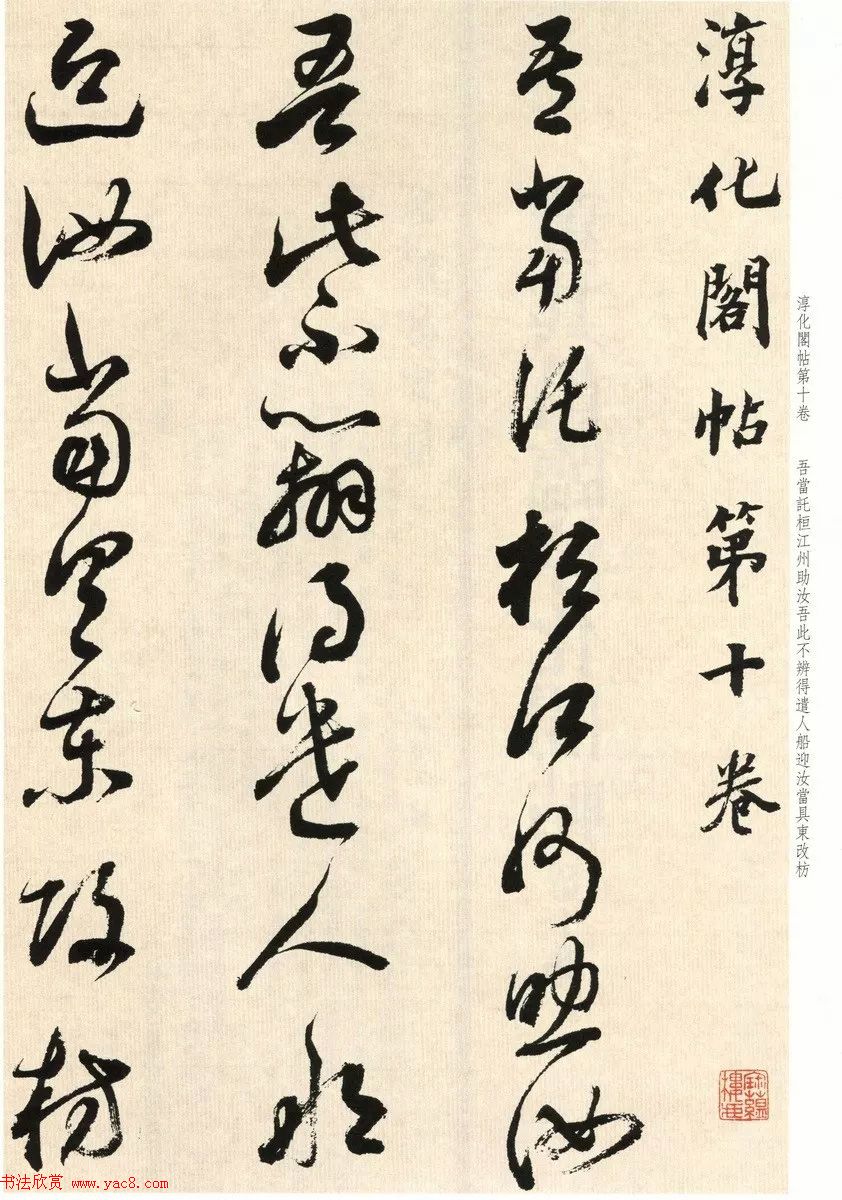 淳化閣帖第十卷 吾當託桓江州助汝吾此不辨得遣人船迎汝當具東改枋
淳化閣帖第十卷
吾當託桓江州助汝
吾此不辨得遣人船
迎汝當具東改枋
书法欣赏 www.yac8.com